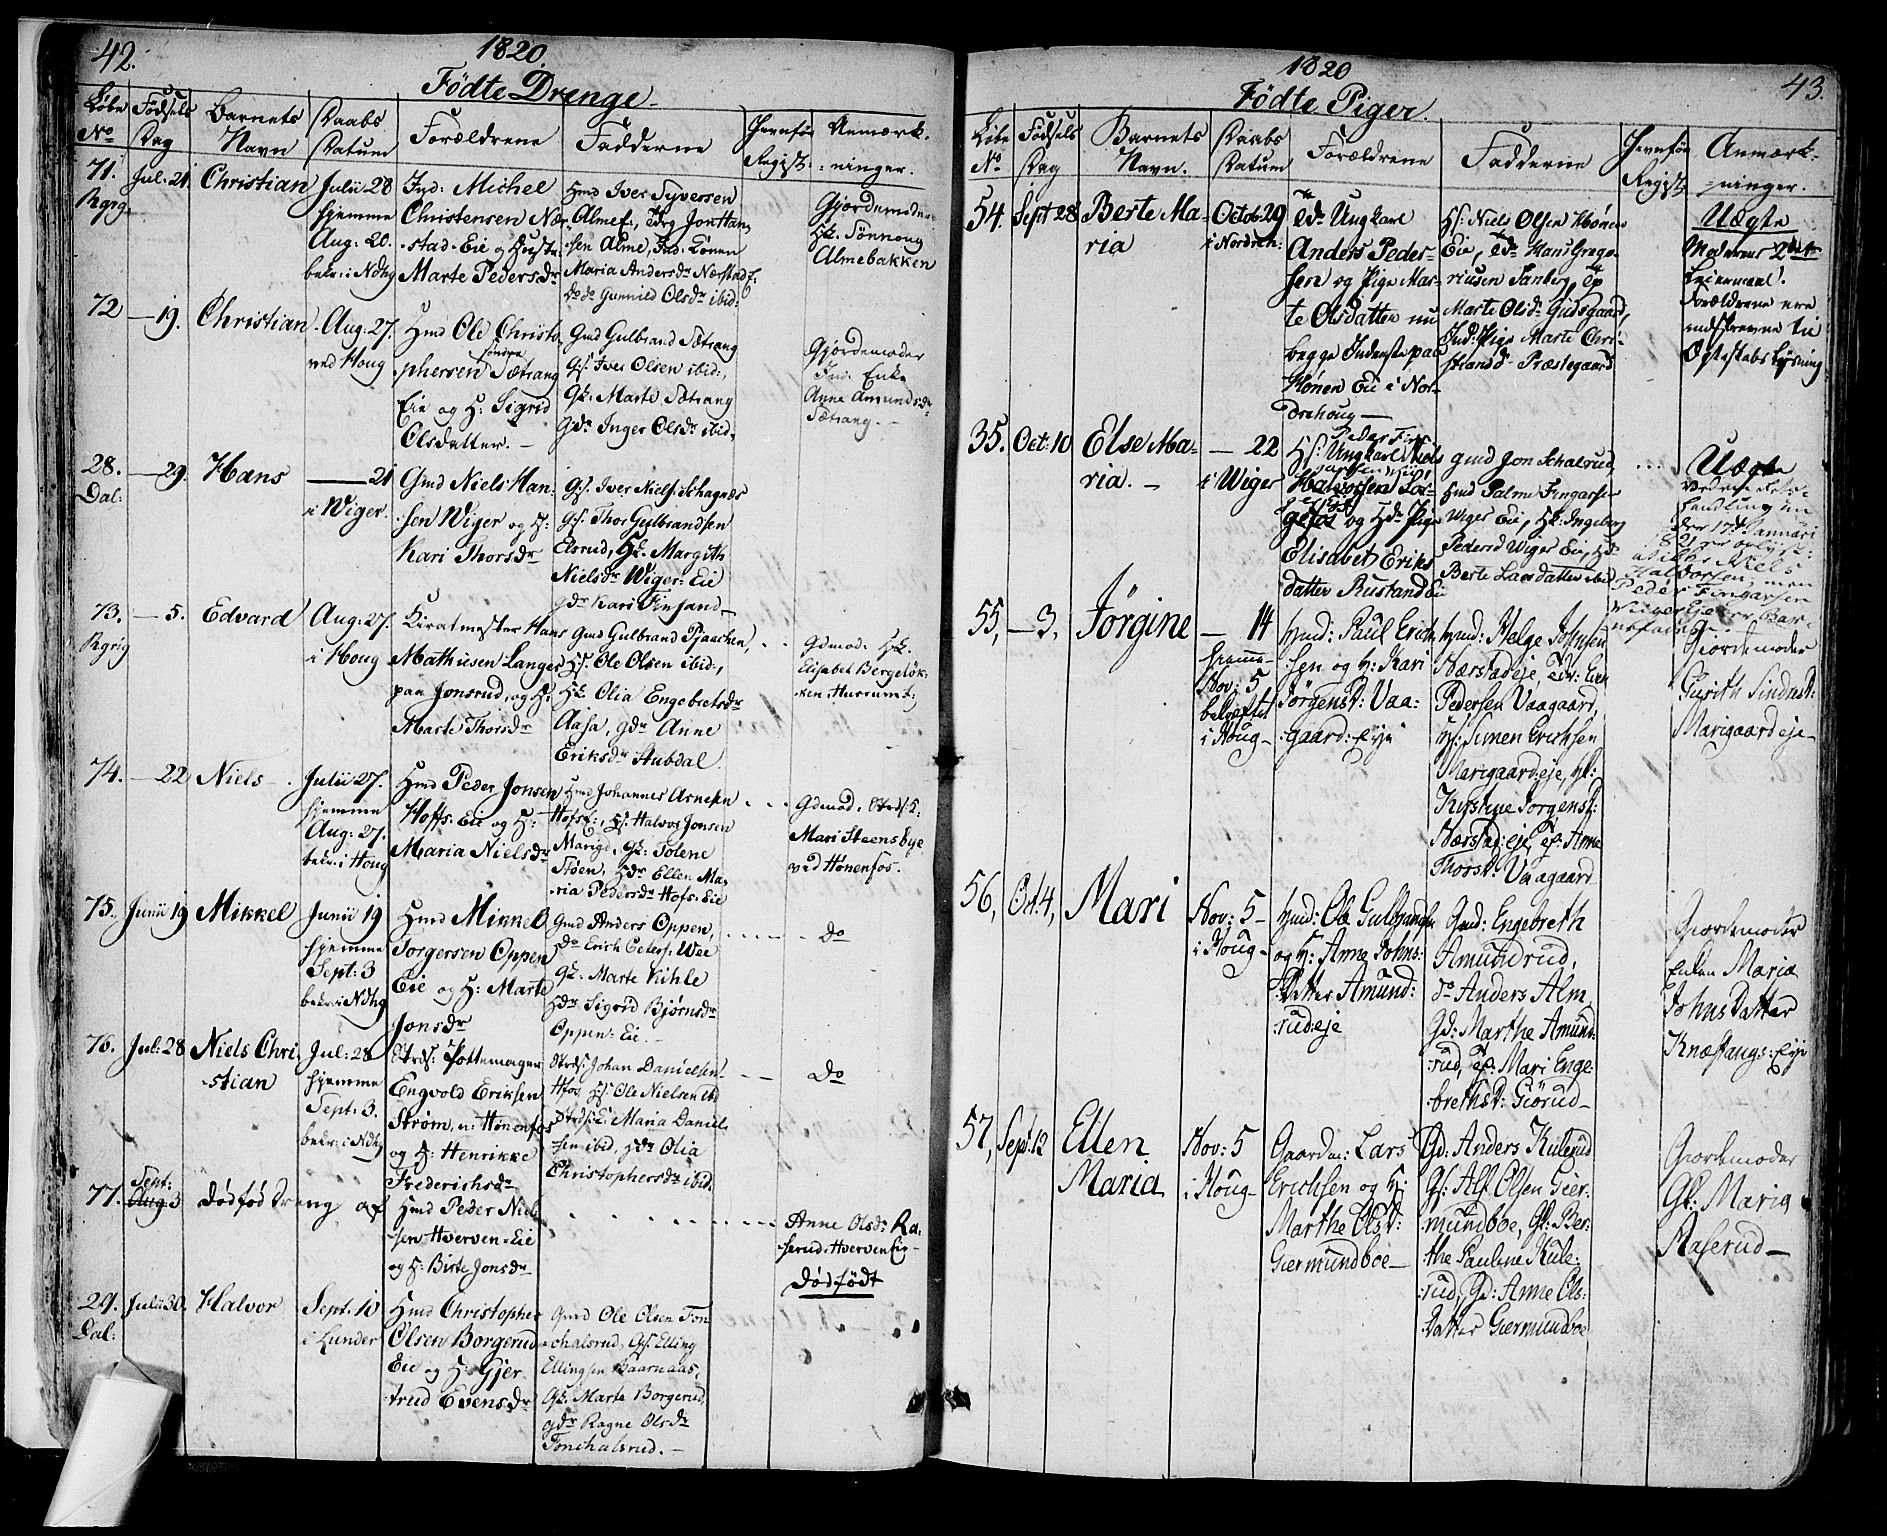 42.
1820.
Fødte Drenge.
Løbe No
Fødsels Dag
Barnets Navn
Daabs Datum
Forældrene
Fadderne
Jevnfør Regist:
Anmærk-
ninger.
71.
Jul: 21.
Christian
Julii 28
hjemme
Aug: 20.
bekr: i Ndhg
Ind: Michel
Christensen Næs-
stad-Eie og Hustr.
Marte Pedersdr
Hmd Iver Syversen
sen Alme, Ind. Lønen
Maria Andersdr Næsstad E.
Do do Gunnild Olsdr ibid:
Gjordemoder
Hk. Tønnoug
Almebakken
72
-19.
Christian
Aug: 27.
ved Houg
Hmd Ole Christo-
phersen søndre Sætrang
Eie og H: Sigrid
Olsdatter. -
Gmd Gulbrand Sætrang
Gs. Iver Olsen ibid:,
Gk: Marte Sætrang
Gdr Inger Olsdr ibid:
Gjordemoder
Ind. Enke
Anne Amundsdr
Sætrang. -
28.
Dal:
-29.
Hans
-21
i Wiger.
Gmd Niels Han-
sen Wiger og H:
Kari Thorsdr
Gs. Thor Gulbrandsen
Elsrud, Hk. Margith
Nielsdr Wiger: Eie
Gdr Kari Finsand-
73.
-5.
Edvard
Aug: 27.
i Houg
Mathiesen Lange
paa Jonsrud, og H:
Marte Thorsdr
Gmd Gulbrand Pjaacken,
Hs. Ole Olsen ibid:,
Hk. Olia Engebretsdr
Aasa, Gdr Anne
Eriksdr Stubdal.
Gdmod. Hk.
Elisabet Bergeløk-
74.
-22
Niels
Julii 27.
hjemme
Aug: 27.
bekr: i Houg
Hmd Peder Jonsen
Hoffs: Eie og H:
Maria Nielsdr
Hmd Johannes Arnesen
Hofs:, Hs. Halvor Jonsen
Støen, Hdr Ellen Ma-
ria Pedersdr Hofs: Eie
Mari Steensbye
ved Hønenfos.
75.
Junii 19
Mikkel
Junii 19
hjemme
Sept: 3
bekr: i Ndhg
Hmd Mikkel
Torgersen Oppen
Eie og H: Marte
Jonsdr
Gmd Anders Oppen,
do Erich Peters: Wee
Gk. Marte Kihle
Hdr Sigrid Bjørnsdr
Oppen: Eie. -
Do
76.
Jul: 28
Niels Chri-
stian
Jul: 28
hjemme
Sept: 3.
bekr: i Ndhg
Strds: Pottemager
Engvold Eriksen
Strøm, u: Hønenfos
og H: Henrikke
Frederichsdr
Strds: Johan Danielsen
Hfos, Hs. Ole Nielsen ibd
Strds: E: Maria Daniel-
sen ibid, Hdr Olia
Christophersdr ibid.
Do
77.
Sept:
Aug: 3
Dødfød Dreng af
Hmd Peder Niel-
sen Hverven: Eie
og H: Birte Jonsdr
Anne Olsdr Ra-
serud: Hverven Eie-
Dødfødt
29.
Dal:
Julii 30.
Halvor
Sept: 10
i Lunder
Hmd Christopher
Olsen Borgerud
Eie og H: Gjer-
trud Evensdr
Gmd Ole Olsen Fon-
chalsrud, Gs. Elling
Ellingsen Baarnaas,
Gk: Marte Borgerud,
Gdr Ragne Olsdr
Fonchalsrud. -
43.
1820
Fødte Piger.
Løbe No
Fødsels Dag
Barnets Navn.
Daabs Datum
Forældrene
Fadderne
Jevnfør Regist:
Anmærk-
ninger.
54.
Sept 28
Berte Ma-
ria
Octob: 29
i Nordreh:
Ungkarl
Anders Peder-
sen og Pige Mar-
te Olsdatter nu
begge Inderste paa
Hønen Eie i Nor-
drehoug-
Hs: Niels Olsen Hønen
Eie, Hans Grego-
riusen Tanberg,
Marte Olsdr Gudsgaard,
Ind: Pige Marte Chri-
stiansd: Præstegaard
Uægte
Moderens 2det
Leiermaal.
Forældrene ere
indskrevne til
Ægteskabs Lysning
35.
Oct: 10
Else Ma-
ria. -
-22
i Wiger
Hs: Ungkarl Niels
Halvorsen
og Pige
Elisabet Eriks-
datter Rustand Eie
Gmd Jon Schalsrud,
Hmd Palme Fingarsen
Wiger Eie, Hk: Ingeborg
Pedersd Wiger Eie,
Berte Larsdatter ibid
Uægte
Niels
Halvorsen, men
Peder Fingarsen
Wiger Eie er Bar-
nefader.
55,
-3.
Jørgine
-14
hjemme-
Nov: 5,
bekræftet
i Houg-
Hmd: Paul Erich-
sen og H: Kari
Jørgensd: Vaa-
gaard: Eje
Hmd: Helge Johnsen
Næsstad eje,
Pedersen Vaagaard,
Hs: Simen Erichsen
Marigaard:eje, Hk:
Kirstine Jørgensd:
Næsstad:eje, Anne
Thorsd: Vaagaard
Gjordemoder
Gurith Sindresd:
Marigaardeje-
56,
Oct: 4,
Mari
Nov: 5-
i Houg-
Hmd: Ole Gulbrandsen
og H: Anne Johns-
datter Amund-
rud:eje
Gmd: Engebreth
Amundrud,
do Anders Alm,
Gd: Marthe Amund-
rud, Mari Enge-
brethsd: Giørud-
Giordemoder
Enken Maria
Johnsdatter
Knæstangs: Eje
57,
Sept: 12
Ellen
Maria
Nov: 5
i Houg-
Gaardm: Lars
Erichsen og H:
Marthe Olsd:
Giermundboe-
Gd: Anders Kulerud
Gs: Alf Olsen Gier-
mundboe, Gk: Ber-
the Pauline Kule-
rud, Gd: Anne Ols-
datter Giermundboe
Giordemoder
Gk: Maria
Raserud-